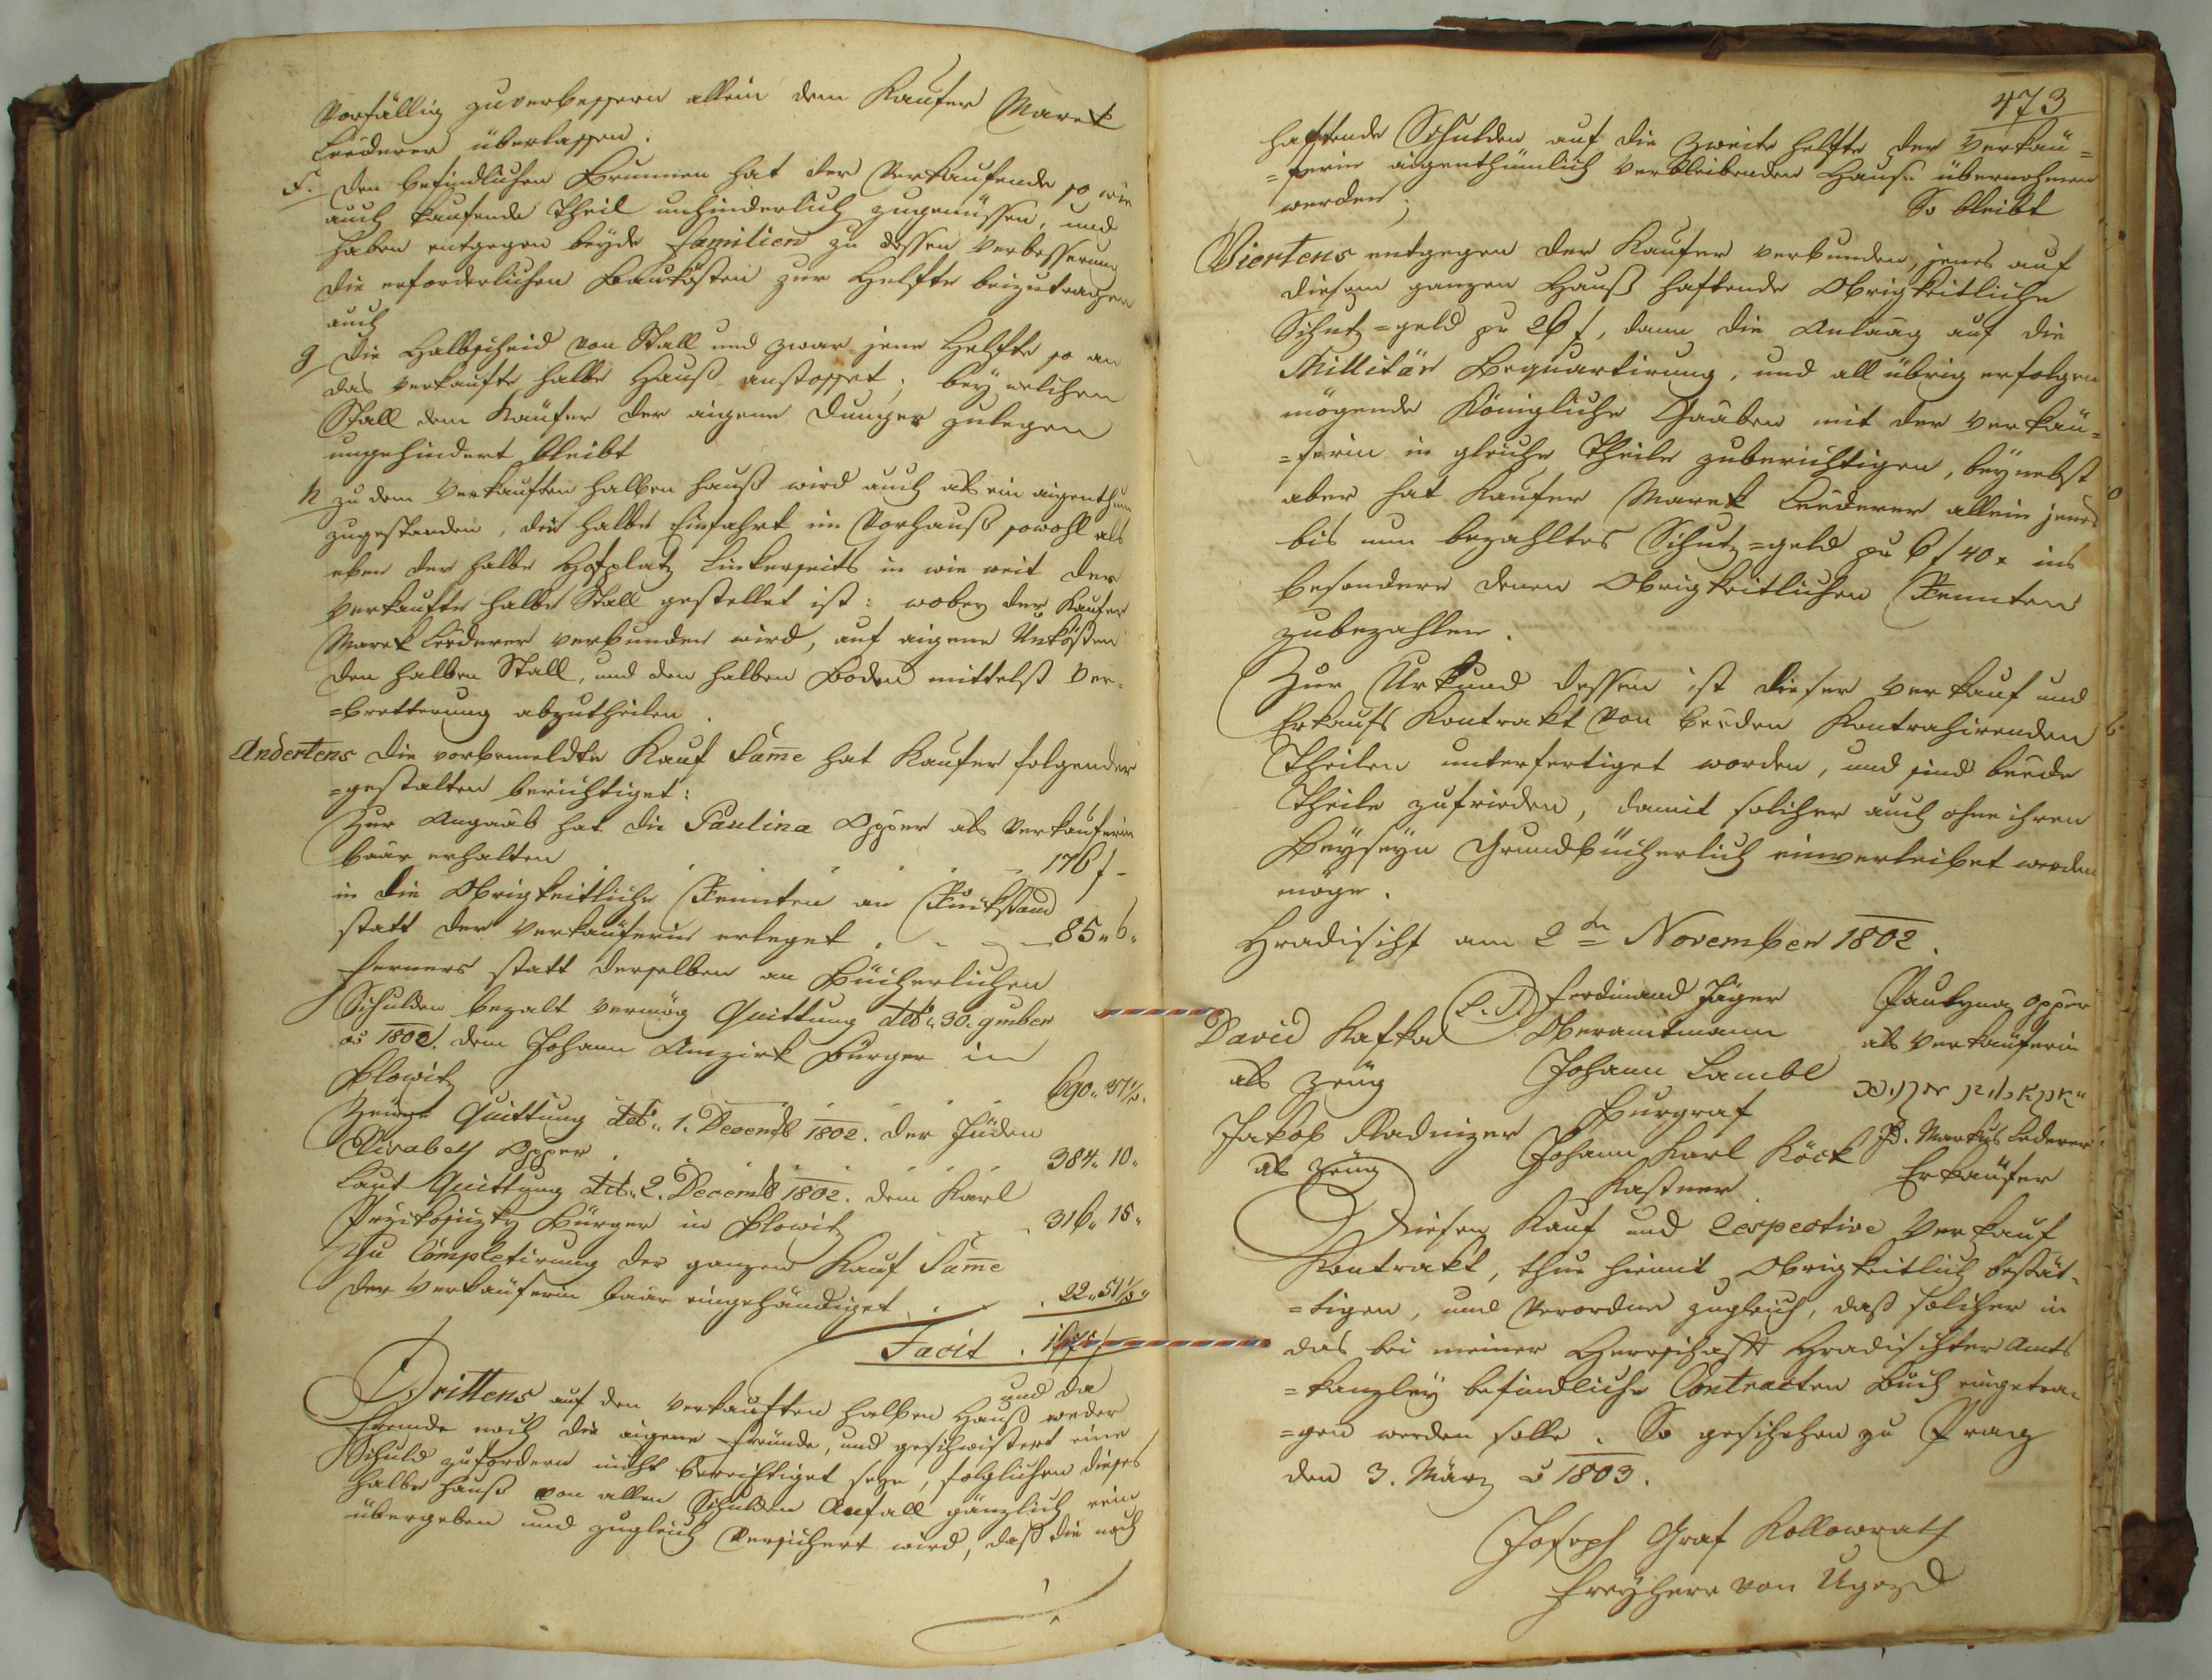 vorfällig zuverbessern allein dem Kaufer Marek
Lederer überlassen.
f. den befindlichen Brunnen hat der Verkaufende so wie
auch kaufende Theil unhinderlich zugenüssen, und
haben entgegen beyde familien zu dessen Verbesserung
die erforderlichen Baukösten zur Helfte beizutragen
auch
g die Halbscheid von Stall und zwar jene Helfte so an
das verkaufte halbe Hauß anstosset; bey welchen
Stall dem Kaufer der aigene Dunger zulegen
ungehindert bleibt
h zu dem Verkauften halben hauß wird auch als ein aigenthum
zugestanden, die halbe Einfahrt im Vorhauß sowohl als
eben der halbe Hofplatz linkerseits in wie weit der
Verkaufte halbe Stall gestellet ist: wobey der Kaufer
Marek Lederer verbunden wird, auf aigene Unkösten
den halben Stall, und den halben Boden mittelst Ver-
=bretterung abzutheilen.
Andertens die vorbemeldte Kauf Sum̅e hat Kaufer folgender
=gestalten berichtiget:
Zur Angaab hat die Paulina Opper als Verkäuferin
baar erhalten . . . 176 f -
in die Obrigkeitliche Rennten an Rückstand
statt der Verkäuferin erleget . - - 85 „ 6 „
ferners statt derselben an Bücherlichen
Schulden bezalt vermög Quittung dto 30. 9mber
ao 1802. dem Johann Burger in
Plowitz . . . 690 „ 37½ „
Zeüge Quittung dto 1. Decemb 1802. der Juden
Elisabeth Opper . . . 384 „ 10 „
Laut Quittung dto 2. Decemb 1802. dem Karl
Burger in Plowitz . . 316 „ 15 „
Zu Completirung der ganzen Kauf Sum̅e
der Verkäuferin baar eingehändiget . . 22 „ 51½ „
Facit . 1675 f
und da
Drittens auf den verkauften halben Hauß weder
fremde noch die aigene freünde, und geschwistert eine
Schuld zufordern nicht berechtiget seye, folglichen dieses
halbe hauß von allen Schulden Anfall gänzlich rein
übergeben und zugleich versichert wird, daß die noch
473
haftende Schulden auf die zweite helfte der Verkäu=
=ferin aigenthümlich verbleibenden Hauß übernohmen
werden;
So bleibt
Viertens entgegen der Kaufer verbunden, jenes auf
diesem ganzen Hauß haftende Obrigkeitliche
Schutz=geld pr 26 f, dann die Anlaag auf die
Millitär Bequartirung, und all übrig erfolgen
mögende Königliche Gaaben mit der Verkäu=
=ferin in gleiche Theile zuberichtigen, beynebst
aber hat Kaufer Marek Lederer allein jenes
bis nun bezahltes Schutz=geld pr 6 f 40 x ins
besondere denen Obrigkeitlichen Rennten
zubezahlen.
Zur Urkund dessen ist dieser Verkauf und
Erkaufs Kontrakt von beeden Kontrahirenden
Theilen unterfertiget worden, und sind beede
Theile zufrieden, damit solcher auch ohne ihren
Beyseyn Grundbücherlich einverleibet werden
möge.
Hradischt am 2tn November 1802.
David Kafka
als Zeüg
Jakob Radnizer
als Zeüg
(L.S.) Ferdinand Jäger
Oberamtmann
Johann Lambl
Burgraf
Johann Karl Köck
Kastner
Paulyna Opper
als Verkäuferin
Jd. Markus Lederer
Erkäufer
Diesen Kauf und Respective Verkauf
Kontrakt, thue hiemit Obrigkeitlich bestät=
=tigen, und verordne zugleich, daß solcher in
das bei meiner Herrschaft Hradischter Amts
=kanzley befindliche Contracten Buch eingetra=
=gen werden solle. So geschehen zu Prag
den 3. März ao 1803.
Joseph Graf Kollowrath
Freyherr von Ugezd